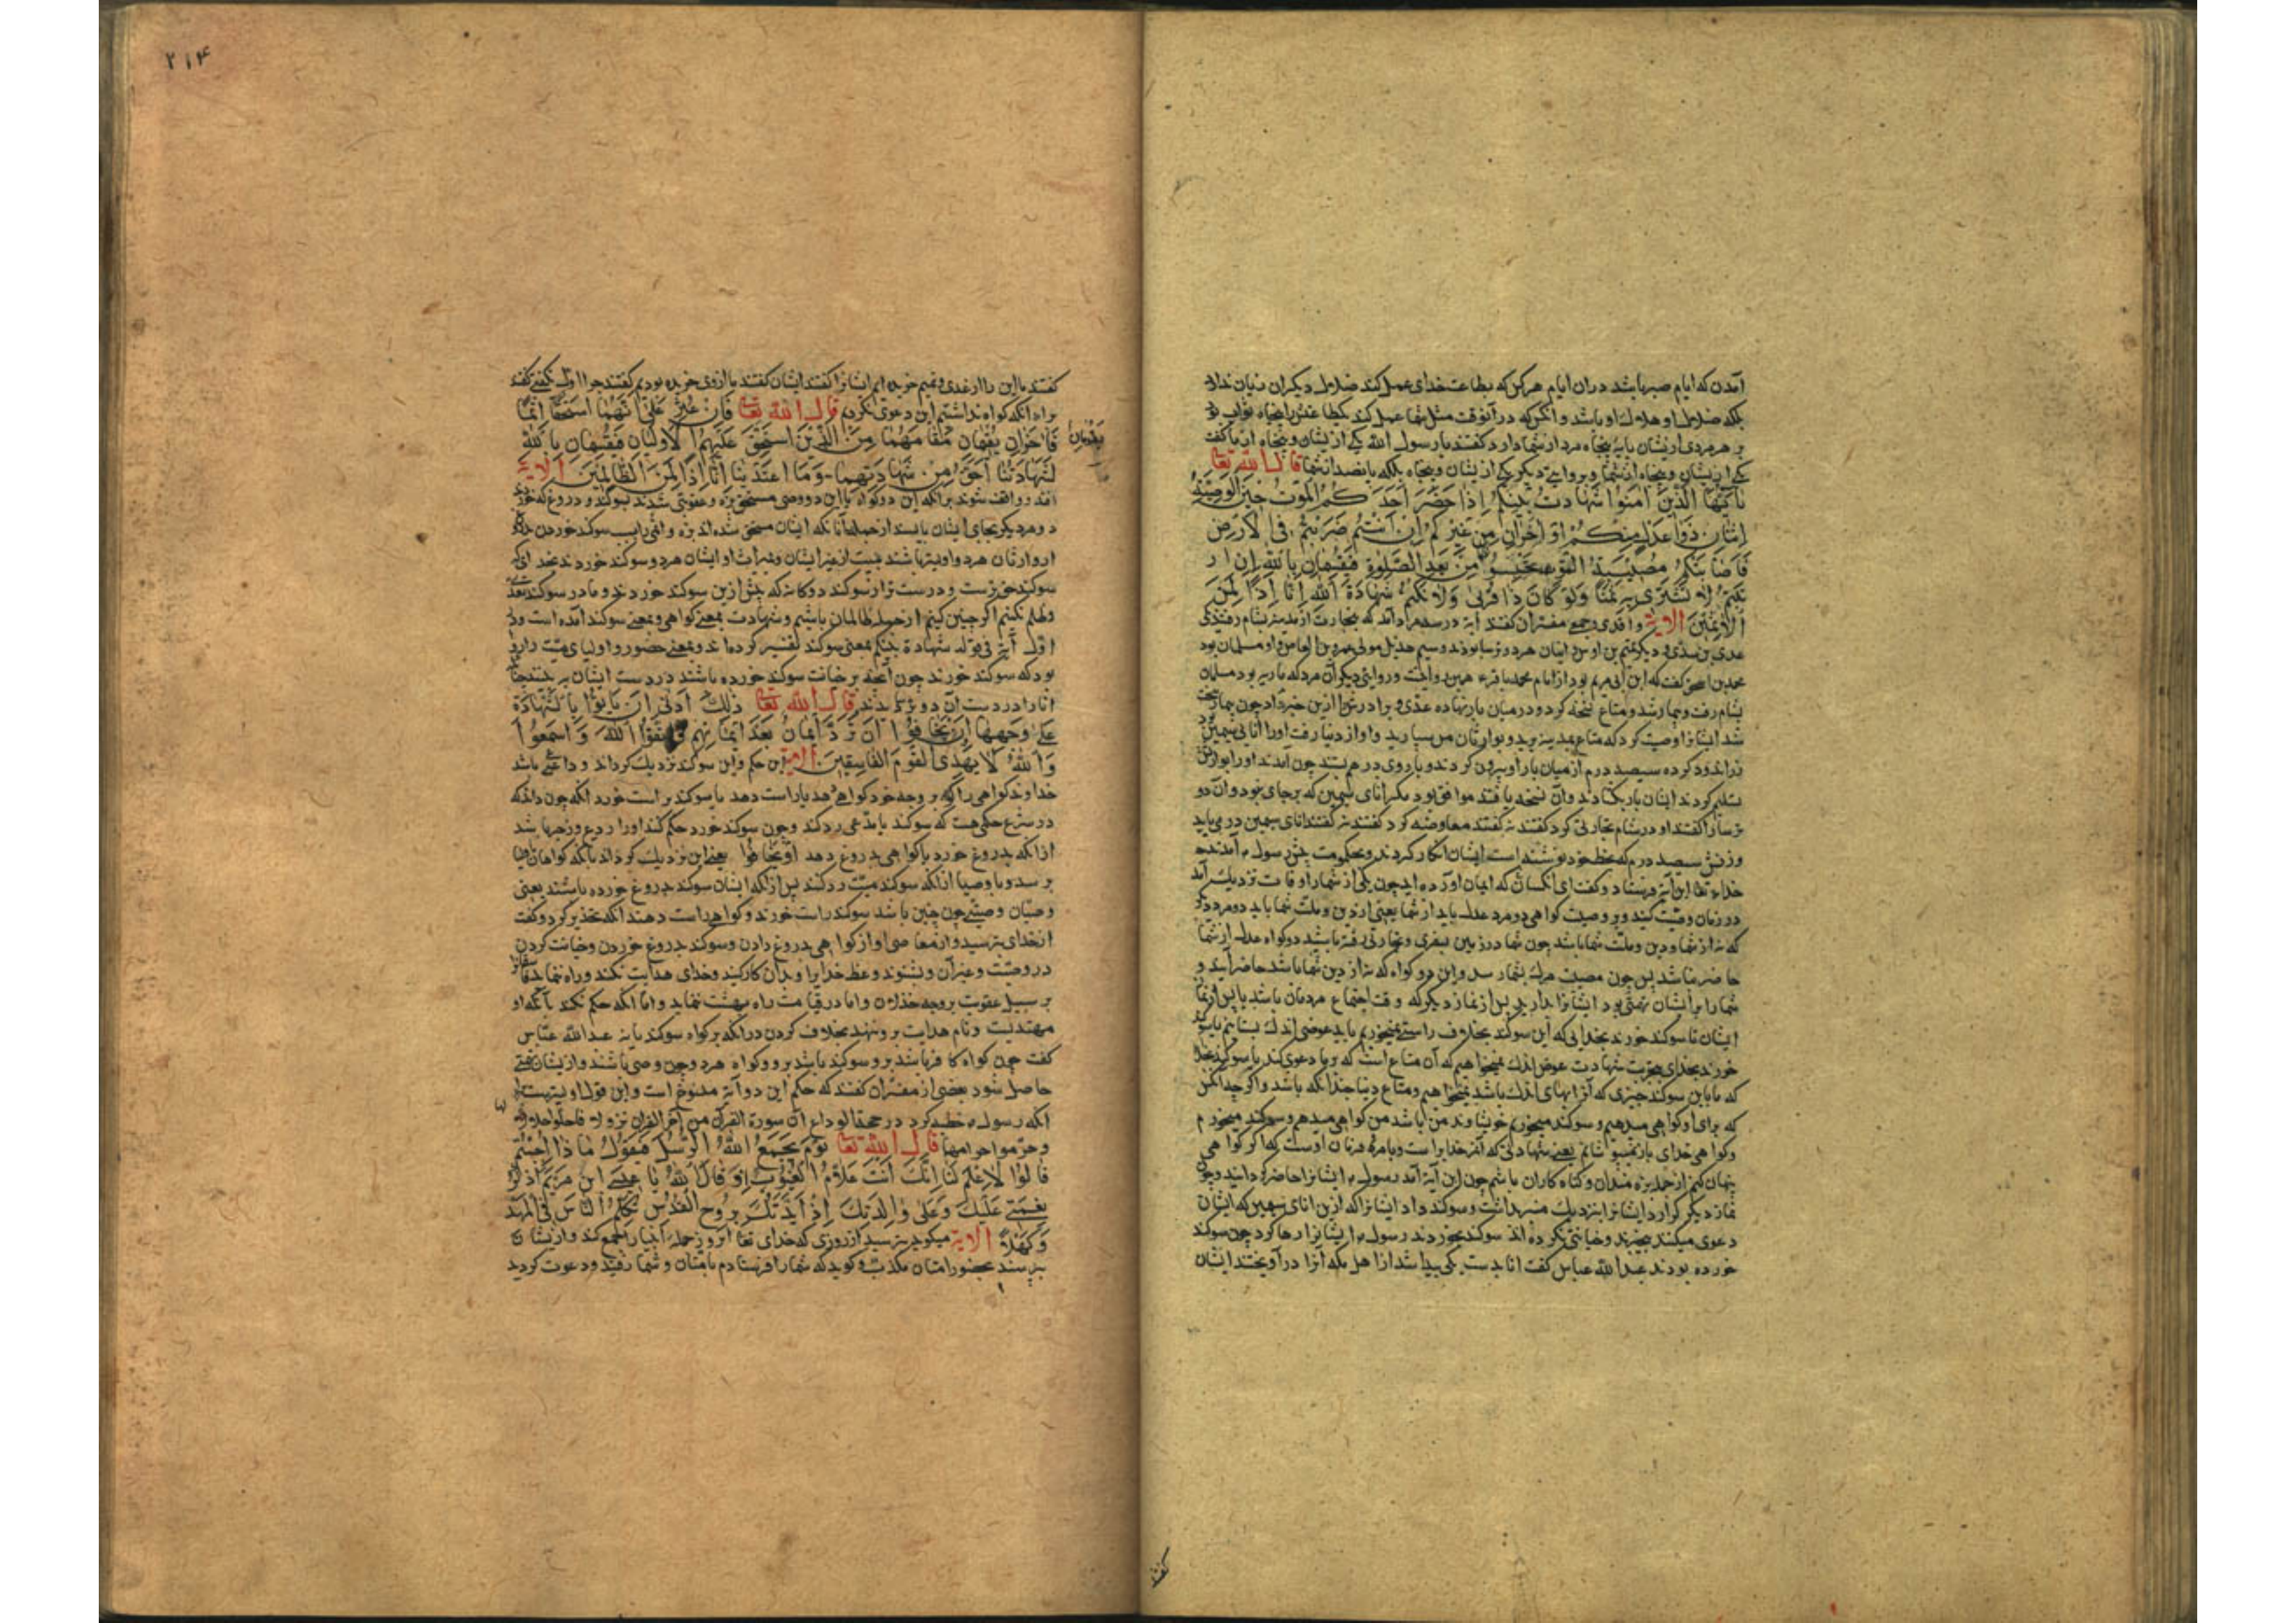 آمدن که ایام صبر باشد در آن ایام هر کس که بطاعت خدای عمل کند ضلال دیگران زیان ندارد
بلکه ضلال و هلاک او باشد و آنکس که در آنوقت مثل شما عمل کند یکطاعتش را پنجاه ثواب بود
بر هر مردی از یشان بپایه پنجاه مرد از شما دارد گفتند یا رسول الله یکی از یشان و پنجاه از ما گفت
یکی از یشان و پنجاه از شما و بروایتی دیگر یکی از یشان و پنجاه بلکه پانصد از شما قال الله تعا
یا ایها الذین امنوا شهادت بینکم اذا حضر احدکم الموت حین الوصیة
اثنان ذوا عدل منکم او اخران من غیرکم ان انتم ضربتم فی الارض
فاصابتکم مصیبة الموت تحبسونهما من بعد الصلوة فیقسمان بالله ان ار
تبتم لا نشتری به ثمنا ولو کان ذا قربی ولا نکتم شهادة الله انا اذا لمن
الاثمین الایة واقدی و جمع مفسران گفتند آیة در سه مرد آمد که بتجارت از مدینه بشام رفتند یکی
عدی بن بدی و دیگر تمیم بن اوس و ایشان هر دو ترسا بودند و سیم بدیل مولی عمرو بن العاص و او مسلمان بود
محمد بن اسحق گفت که ابن ابی مریم بود از امام محمد باقر ع همین روایت و روایتی دیگر آن مرد که ماریه بود مسلمان
بشام رفت و بیمار شد و متاع نسخه کرد و در میان بار نهاده عدی و برادرش ازین خبر نداد چون بیماریش سخت
شد ایشانرا وصیت کرد که متاع بمدینه برید و بوارثان من سپارید و او از دنیا رفت اورا انایی سیمین بود
زراندود کرده سیصد درم از میان بار او بیرون کردند و باروی درهم بستند چون آمدند اورا بوارثش
تسلیم کردند ایشان بار بگشادند و آن نسخه یافتند موافق بود مگر انای سیمین که بر جای نبود و آن دو
ترسا را گفتند او در شام تجارتی کرد گفتند نه گفتند معاوضه کرد گفتند نه گفتند انای سیمین در می باید
وزنش سیصد درم که بخط خود نوشته است ایشان انکار کردند و بحکومت پیش رسول ص آمدند
خدای تعا این آیة فرستاد و گفت ای کسانی که ایمان آورده اید چون یکی از شما را وفات نزدیک آید
در زمان وصیت کنید و بر وصیت گواهی دو مرد عدل باید از شما یعنی از دین و ملت شما یا دو مرد دیگر
که نه از شما و دین و ملت شما باشد چون شما در زمین بسفری و تجارتی رفته باشید دو گواه عدل از شما
حاضر نباشد پس چون مصیبت مرگ بشما رسد و این دو گواه که نه از دین شما باشد حاضر آیند و
شما را بر ایشان تهمتی بود ایشانرا بدارید پس از نماز دیگر که وقت اجتماع مردمان باشد یا پس از نماز
ایشان تا سوگند خورند بخدایی که این سوگند بخلاف راستی نمیخوریم یا بدعوضی اندک بستانیم یا سوگند
خورند بخدای بتحریف شهادت عوض اندک نمیخواهیم که آن متاع است که بر ما دعوی کند یا سوگند خدا
که ما باین سوگند چیزی که آنرا بهای اندک باشد نمیخواهیم و متاع دنیا چندانکه باشد و اگر چه آنکس
که برای او گواهی میدهیم و سوگند میخوریم خویشاوند من باشد من گواهی میدهم و سوگند میخورم
و گواهی خدای باز نمیپوشانیم یعنی شهادتی که آنرا خدایرا است و بامر و فرمان اوست که اگر گواهی
پنهان کنیم از جمله بزه مندان و گناه کاران باشیم چون این آیة آمد رسول ص ایشانرا حاضر گردانید و چون
نماز دیگر گزارد ایشانرا بنزدیک منبر داشت و سوگند داد ایشانرا که ازین انای سیمین که ایشان
دعوی میکنند بیخبرند و خیانتی نکرده اند سوگند بخوردند رسول ص ایشانرا رها کرد چون سوگند
خورده بودند عبدالله عباس گفت انا بدست یکی پیدا شد از اهل مکه آنرا درآویختند ایشان
گفتند
۲۱۴
گفتند ما این را از عدی و تمیم خریده ایم ایشانرا گفتند ایشان گفتند ما از وی خریده بودیم گفتند چرا اول نگفتی گفتند
برای آنکه گواه نداشتیم این دعوی نکردیم قال الله تعا فان عثر علی انهما استحقا اثما
فاخران یقومان مقامهما من الذین استحق علیهم الاولیان فیقسمان بالله
یقومان
لشهادتنا احق من شهادتهما وما اعتدینا انا اذا لمن الظالمین الایة
افتد و واقف شوند بر آنکه این دو گواه یا این دو وصی مستحق بزه و عقوبتی شدند بسوگند و دروغ که خوردند
دو مرد دیگر بجای ایشان بایستند از جمله آنانکه ایشان مستحق شده اند بزه و اثم را بسبب سوگند خوردن
از وارثان هر دو اولیتر باشند بمیت از غیر ایشان و بمیراث او ایشان هر دو سوگند خوردند بخدای که
سوگند حق ترست و درست تر از سوگند دوگانه که پیش ازین سوگند خوردند و ما در سوگند تعدی
و ظلم نکنیم اگر چنین کنیم از جمله ظالمان باشیم و شهادت بمعنی گواهی و بمعنی سوگند آمده است و در
اول آیة فی قوله شهادة بینکم بمعنی سوگند تفسیر کرده اند و بمعنی حضور و اولیای میت را روا
بود که سوگند خورند چون آنچه بر خیانت سوگند خورده باشند در دست ایشان بر
انا را در دست آن دو ترسا بدیدند قال الله تعا ذلک ادنی ان یاتوا بالشهادة
علی وجهها او یخافوا ان ترد ایمان بعد ایمانهم واتقوا الله واسمعوا
والله لا یهدی القوم الفاسقین الایة این حکم و این سوگند نزدیک گرداند و داعی باشد
خداوند گواهی را که بر وجه خود گواهی دهد یا راست دهد یا سوگند براست خورد آنکه چون داند که
در شرع حکمی هست که سوگند با مدعی رد کند و چون سوگند خورد حکم کند اورا ردع و زجر باشد
از آنکه بدروغ خورد یا گواهی بدروغ دهد او یخافوا یعنی این نزدیک گرداند بآنکه گواهان
برسد و با وصیا از آنکه سوگند میت رد کنند پس از آنکه ایشان سوگند بدروغ خورده باشند یعنی
وصیان وصیتی چون چنین باشد سوگند راست خورند و گواهی راست دهند آنکه تحذیر کرد و گفت
از خدای بترسید و از معاصی او از گواهی بدروغ دادن و سوگند بدروغ خوردن و خیانت کردن
در وصیت و غیر آن و بشنوند وعظ خدایرا و بدان کار کنید و خدای هدایت نکند و راه ننماید فاسقانرا
بر سبیل عقوبت بر وجه خذلان و اما در قیامت راه بهشت ننماید و اما آنکه حکم نکند بآنکه او
مهتدیست و نام هدایت بر و ننهد بخلاف کردن در آنکه بر گواه سوگند یا نه عبدالله عباس
گفت چون گواه کافر باشد بر و سوگند باشد بر دو گواه هر دو چون وصی باشند و از یشان تهمتی
حاصل شود بعضی از مفسران گفتند که حکم این دو آیة منسوخ است و این قول اولیترست
آنکه رسول ص خطبه کرد در حجة الوداع آن سورة القرآن من آخر القرآن نزولا فاحلوا حلالها
وحرموا حرامها قال الله تعا یوم یجمع الله الرسل فیقول ماذا اجبتم
قالوا لا علم لنا انک انت علام الغیوب اذ قال الله یا عیسی ابن مریم اذکر
نعمتی علیک وعلی والدتک اذ ایدتک بروح القدس تکلم الناس فی المهد
وکهلا الایة میگوید بترسید از روزی که خدای تعا آنروز جمله انبیا را جمع کند و از یشان
بپرسد بحضور امتان مکذب و گوید که شما را فرستادم بامتان و شما رفتید و دعوت کردید